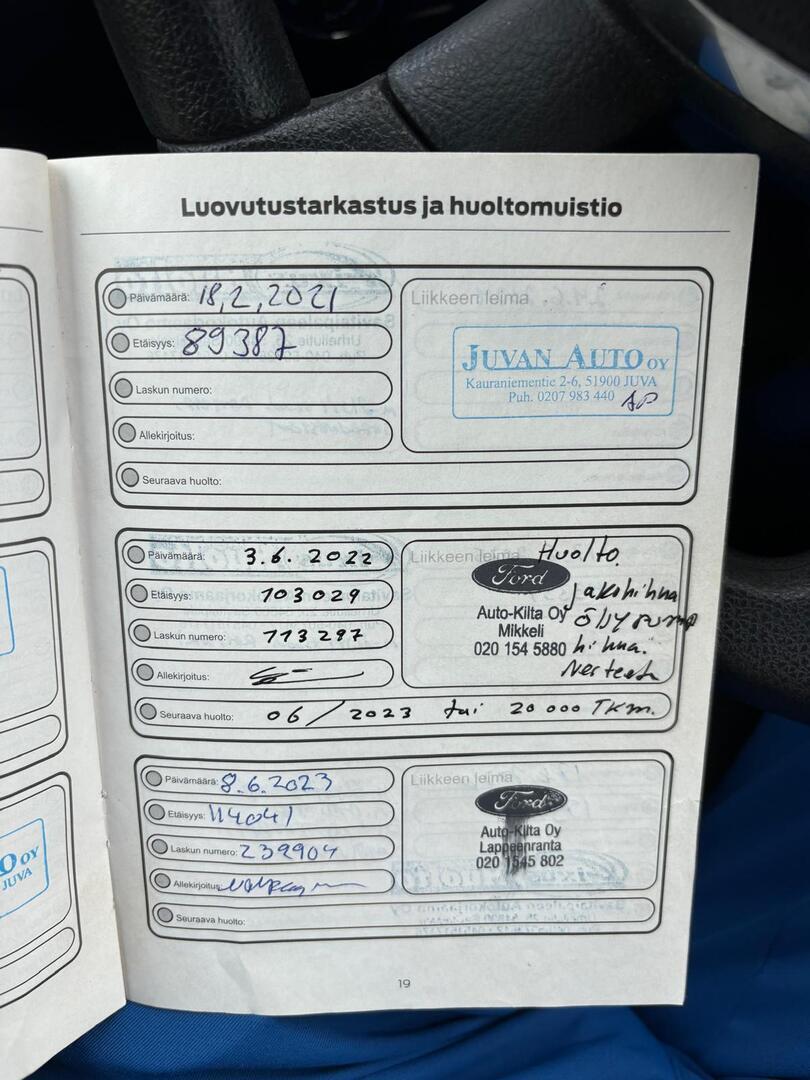 Luovutustarkastus ja huoltomuistio
Päivämäärä: 18,2,2021
Etäisyys: 89387
Laskun numero:
Allekirjoitus:
Seuraava huolto:
Liikkeen leima
JUVAN AUTO OY
Kauraniementie 2-6, 51900 JUVA
Puh. 0207 983 440
Päivämäärä: 3.6.2022
Etäisyys: 103029
Laskun numero: 113297
Allekirjoitus:
Seuraava huolto: 06/2023 tai 20 000 TKm.
Liikkeen leima
Huolto.
Ford
Jakohihna
Auto-Kilta Oy
Mikkeli
020 154 5880
hihna.
Nesteet
Päivämäärä: 8.6.2023
Etäisyys: 114041
Laskun numero: 239904
Allekirjoitus:
Seuraava huolto:
Liikkeen leima
Ford
Auto-Kilta Oy
Lappeenranta
020 1545 802
19
OY
JUVA